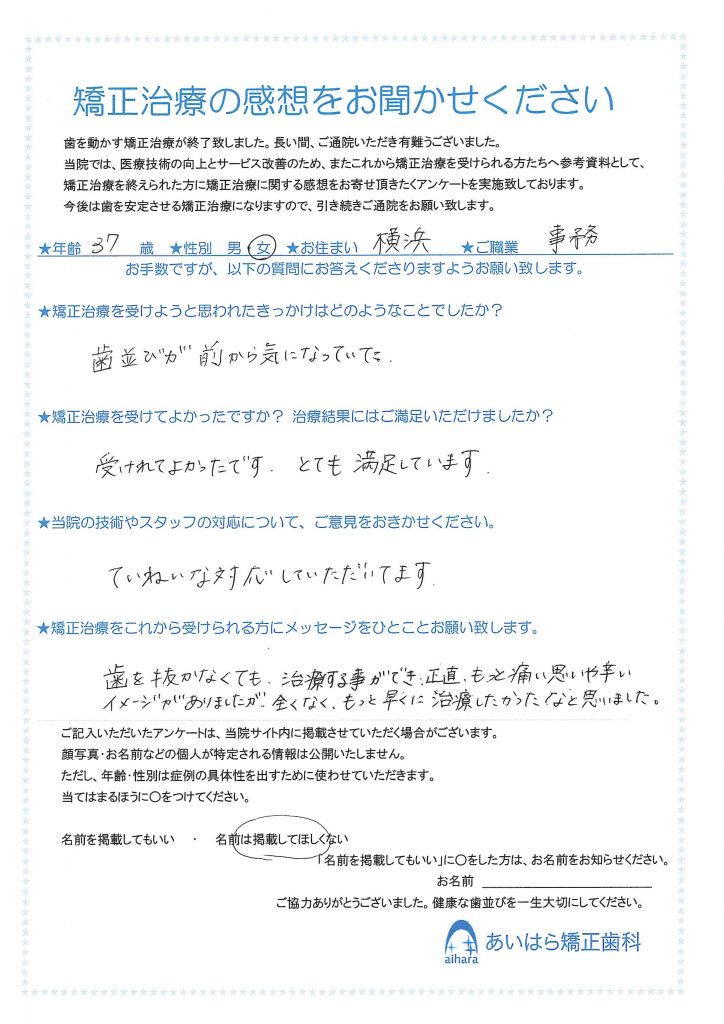 矯正治療の感想をお聞かせください
歯を動かす矯正治療が終了致しました。長い間、ご通院いただき有難うございました。
当院では、医療技術の向上とサービス改善のため、またこれから矯正治療を受けられる方たちへ参考資料として、
矯正治療を終えられた方に矯正治療に関する感想をお寄せ頂きたくアンケートを実施致しております。
今後は歯を安定させる矯正治療になりますので、引き続きご通院をお願い致します。
★年齢 37 歳 ★性別 男・女 ★お住まい 横浜 ★ご職業 事務
お手数ですが、以下の質問にお答えくださりますようお願い致します。
★矯正治療を受けようと思われたきっかけはどのようなことでしたか？
歯並びが前から気になっていた.
★矯正治療を受けてよかったですか？ 治療結果にはご満足いただけましたか？
受けれてよかったです. とても満足しています.
★当院の技術やスタッフの対応について、ご意見をおきかせください。
ていねいな対応していただいてます.
★矯正治療をこれから受けられる方にメッセージをひとことお願い致します。
歯を抜かなくても、治療する事ができ、正直、もっと痛い思いや辛い
イメージがありましたが、全くなく、もっと早くに治療したかったなと思いました。
ご記入いただいたアンケートは、当院サイト内に掲載させていただく場合がございます。
顔写真・お名前などの個人が特定される情報は公開いたしません。
ただし、年齢・性別は症例の具体性を出すために使わせていただきます。
当てはまるほうに〇をつけてください。
名前を掲載してもいい ・ 名前は掲載してほしくない
「名前を掲載してもいい」に〇をした方は、お名前をお知らせください。
お名前
ご協力ありがとうございました。健康な歯並びを一生大切にしてください。
aihara あいはら矯正歯科